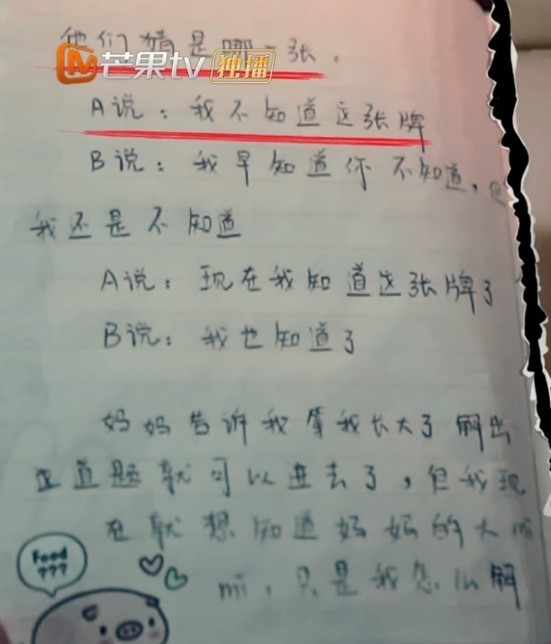 他们猜是哪一张。
芒果tv 独播
A说：我不知道这张牌
B说：我早知道你不知道，但
我还是不知道
A说：现在我知道这张牌了
B说：我也知道了
妈妈告诉我等我长大了解出
这道题就可以进去了，但我现
在就想知道妈妈的大mi
mi，只是我怎么解
Food
???